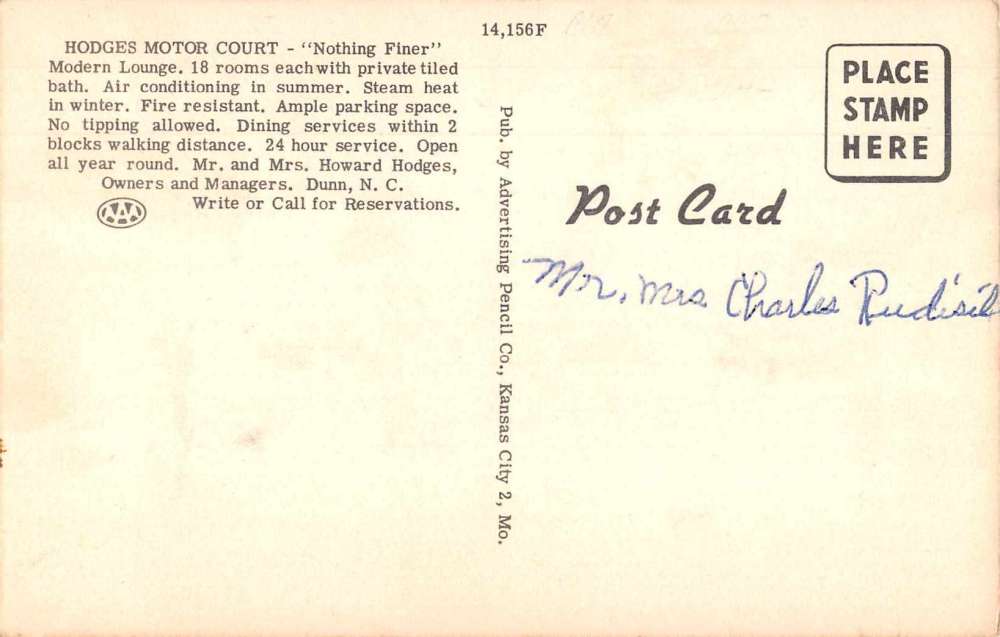 14,156F
HODGES MOTOR COURT - "Nothing Finer"
Modern Lounge. 18 rooms each with private tiled
bath. Air conditioning in summer. Steam heat
in winter. Fire resistant. Ample parking space.
No tipping allowed. Dining services within 2
blocks walking distance. 24 hour service. Open
all year round. Mr. and Mrs. Howard Hodges,
Owners and Managers. Dunn, N. C.
AAA
Write or Call for Reservations.
Pub. by Advertising Pencil Co., Kansas City 2, Mo.
PLACE
STAMP
HERE
Post Card
Mr. Mrs Charles